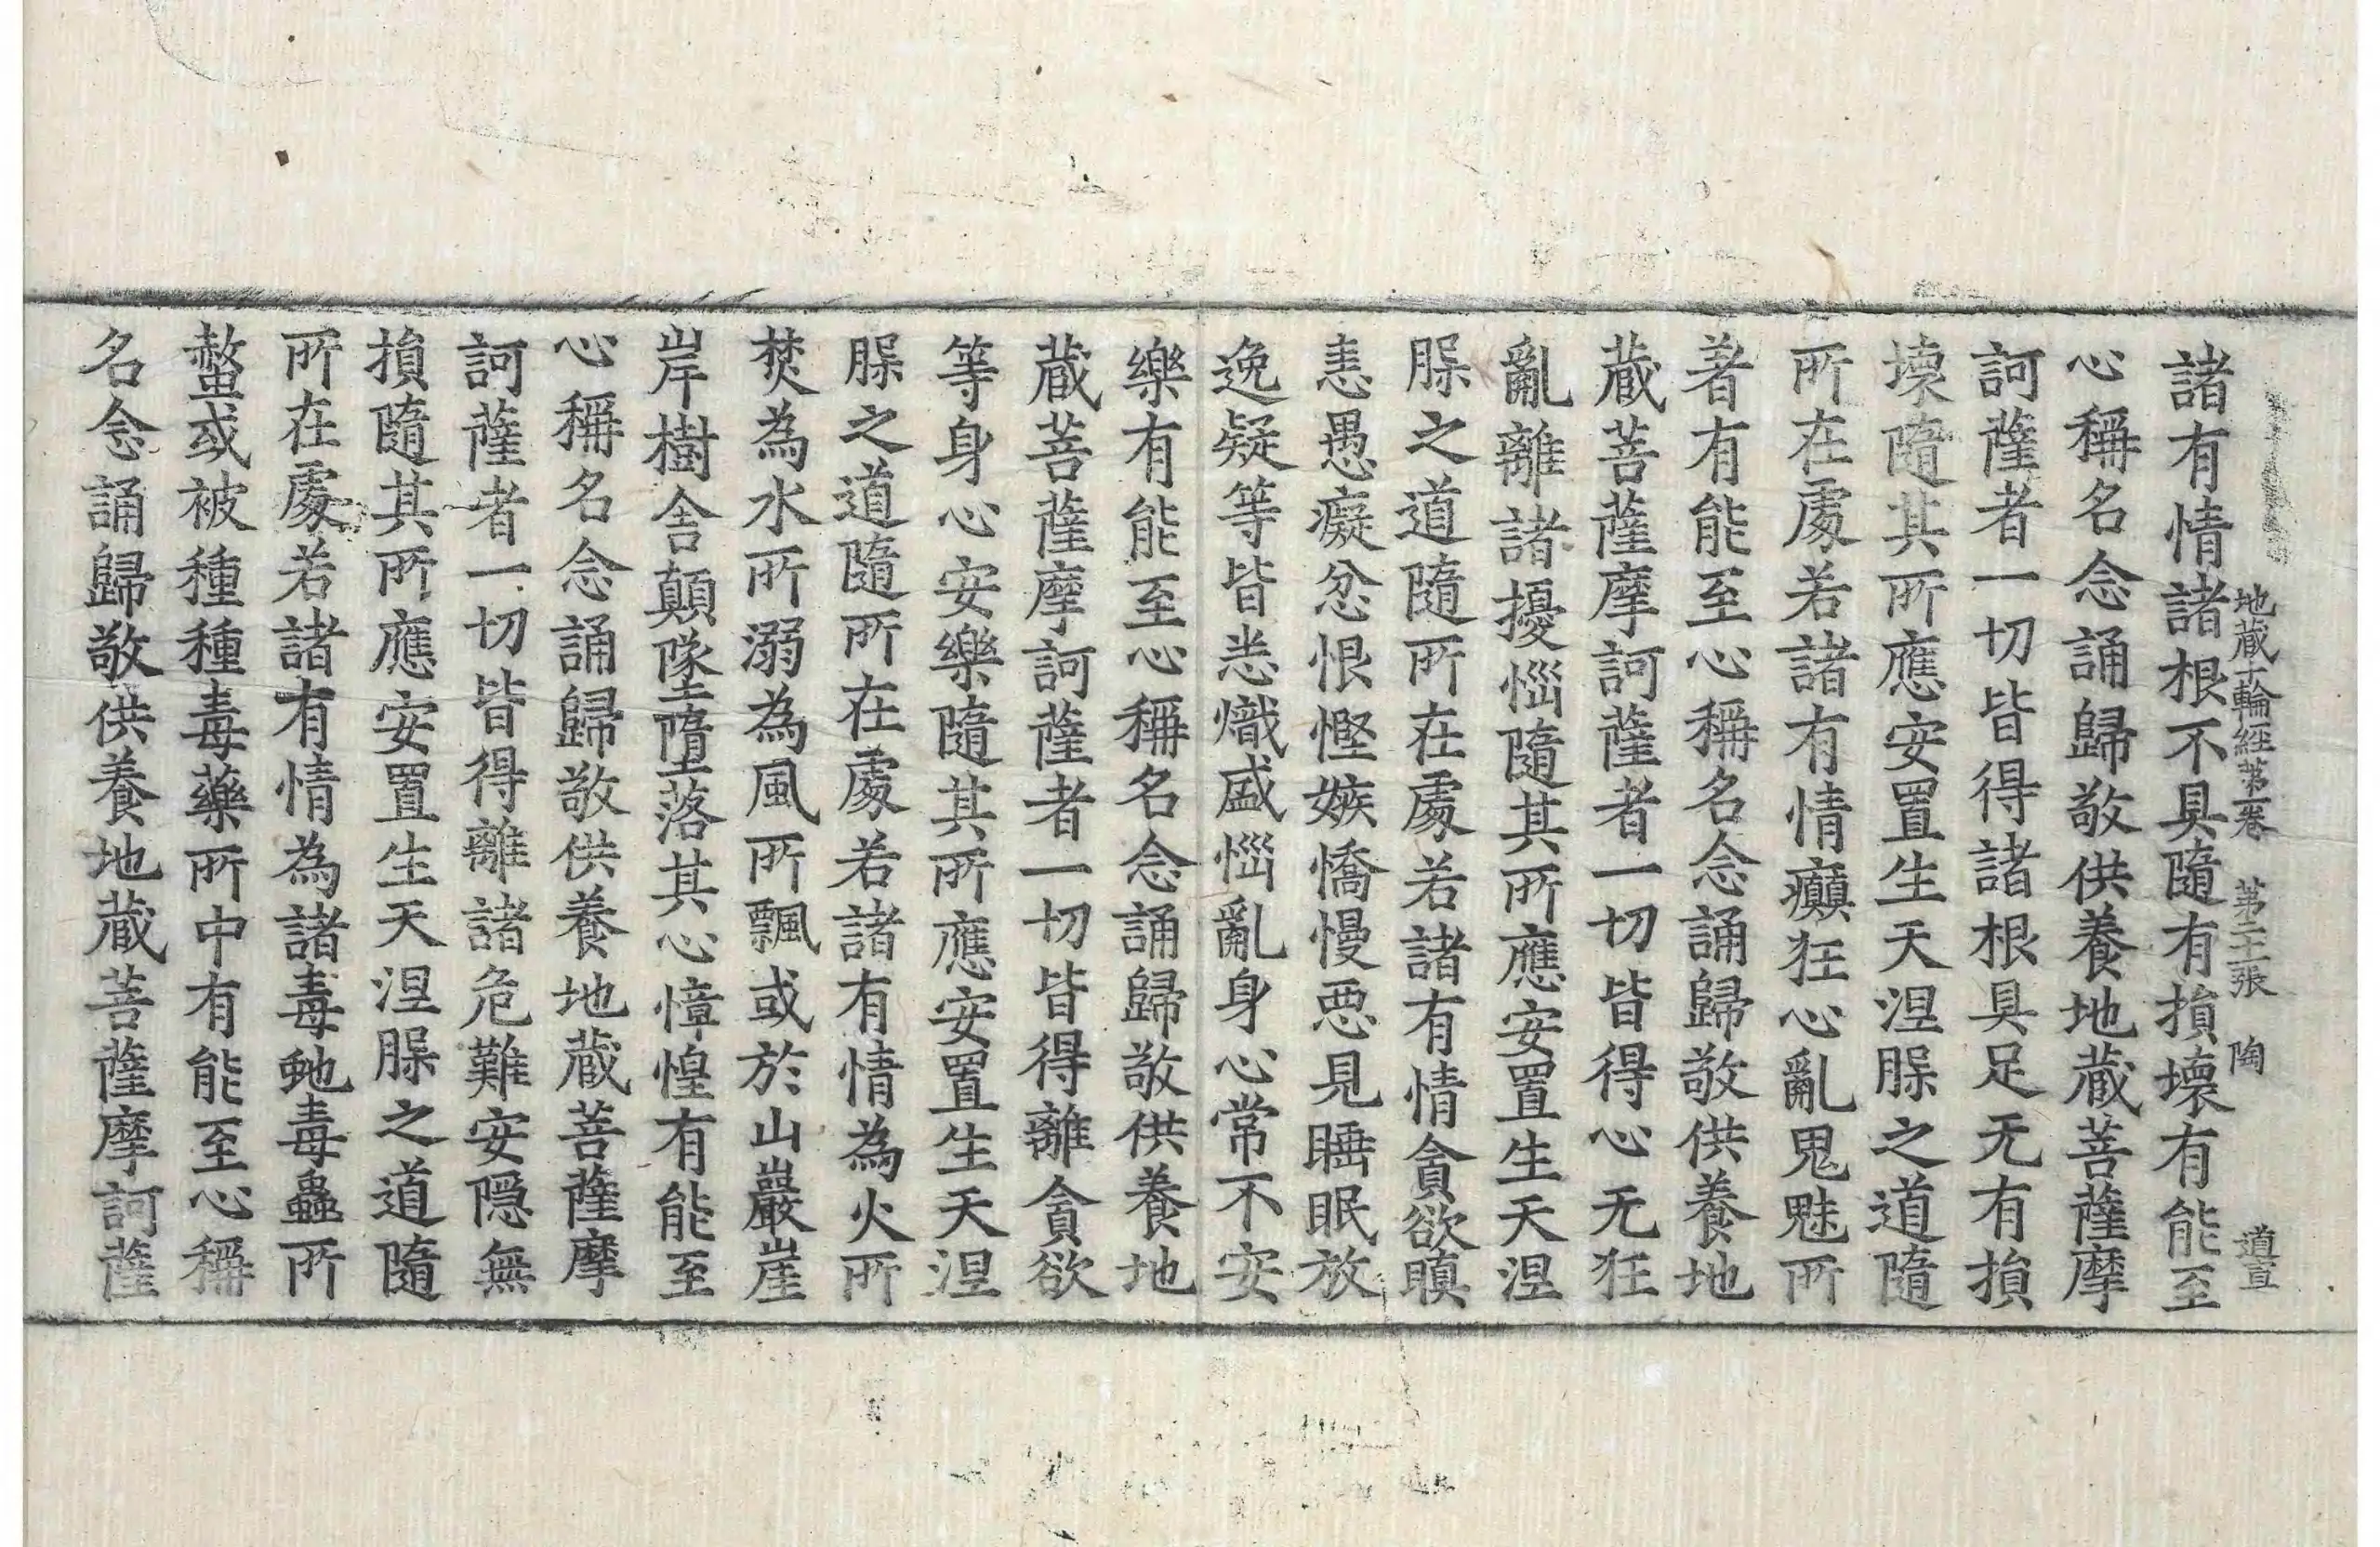 地藏十輪經第一卷 第二十張 陶 道宣
諸有情諸根不具隨有損壞有能至
心稱名念誦歸敬供養地藏菩薩摩
訶薩者一切皆得諸根具足无有損
壞隨其所應安置生天涅槃之道隨
所在處若諸有情癲狂心亂鬼魅所
著有能至心稱名念誦歸敬供養地
藏菩薩摩訶薩者一切皆得心无狂
亂離諸擾惱隨其所應安置生天涅
槃之道隨所在處若諸有情貪欲瞋
恚愚癡忿恨慳嫉憍慢惡見睡眠放
逸疑等皆悉熾盛惱亂身心常不安
樂有能至心稱名念誦歸敬供養地
藏菩薩摩訶薩者一切皆得離貪欲
等身心安樂隨其所應安置生天涅
槃之道隨所在處若諸有情為火所
焚為水所溺為風所飄或於山巖崖
岸樹舍顛墜墮落其心慞惶有能至
心稱名念誦歸敬供養地藏菩薩摩
訶薩者一切皆得離諸危難安隱無
損隨其所應安置生天涅槃之道隨
所在處若諸有情為諸毒虵毒蟲所
螫或被種種毒藥所中有能至心稱
名念誦歸敬供養地藏菩薩摩訶薩